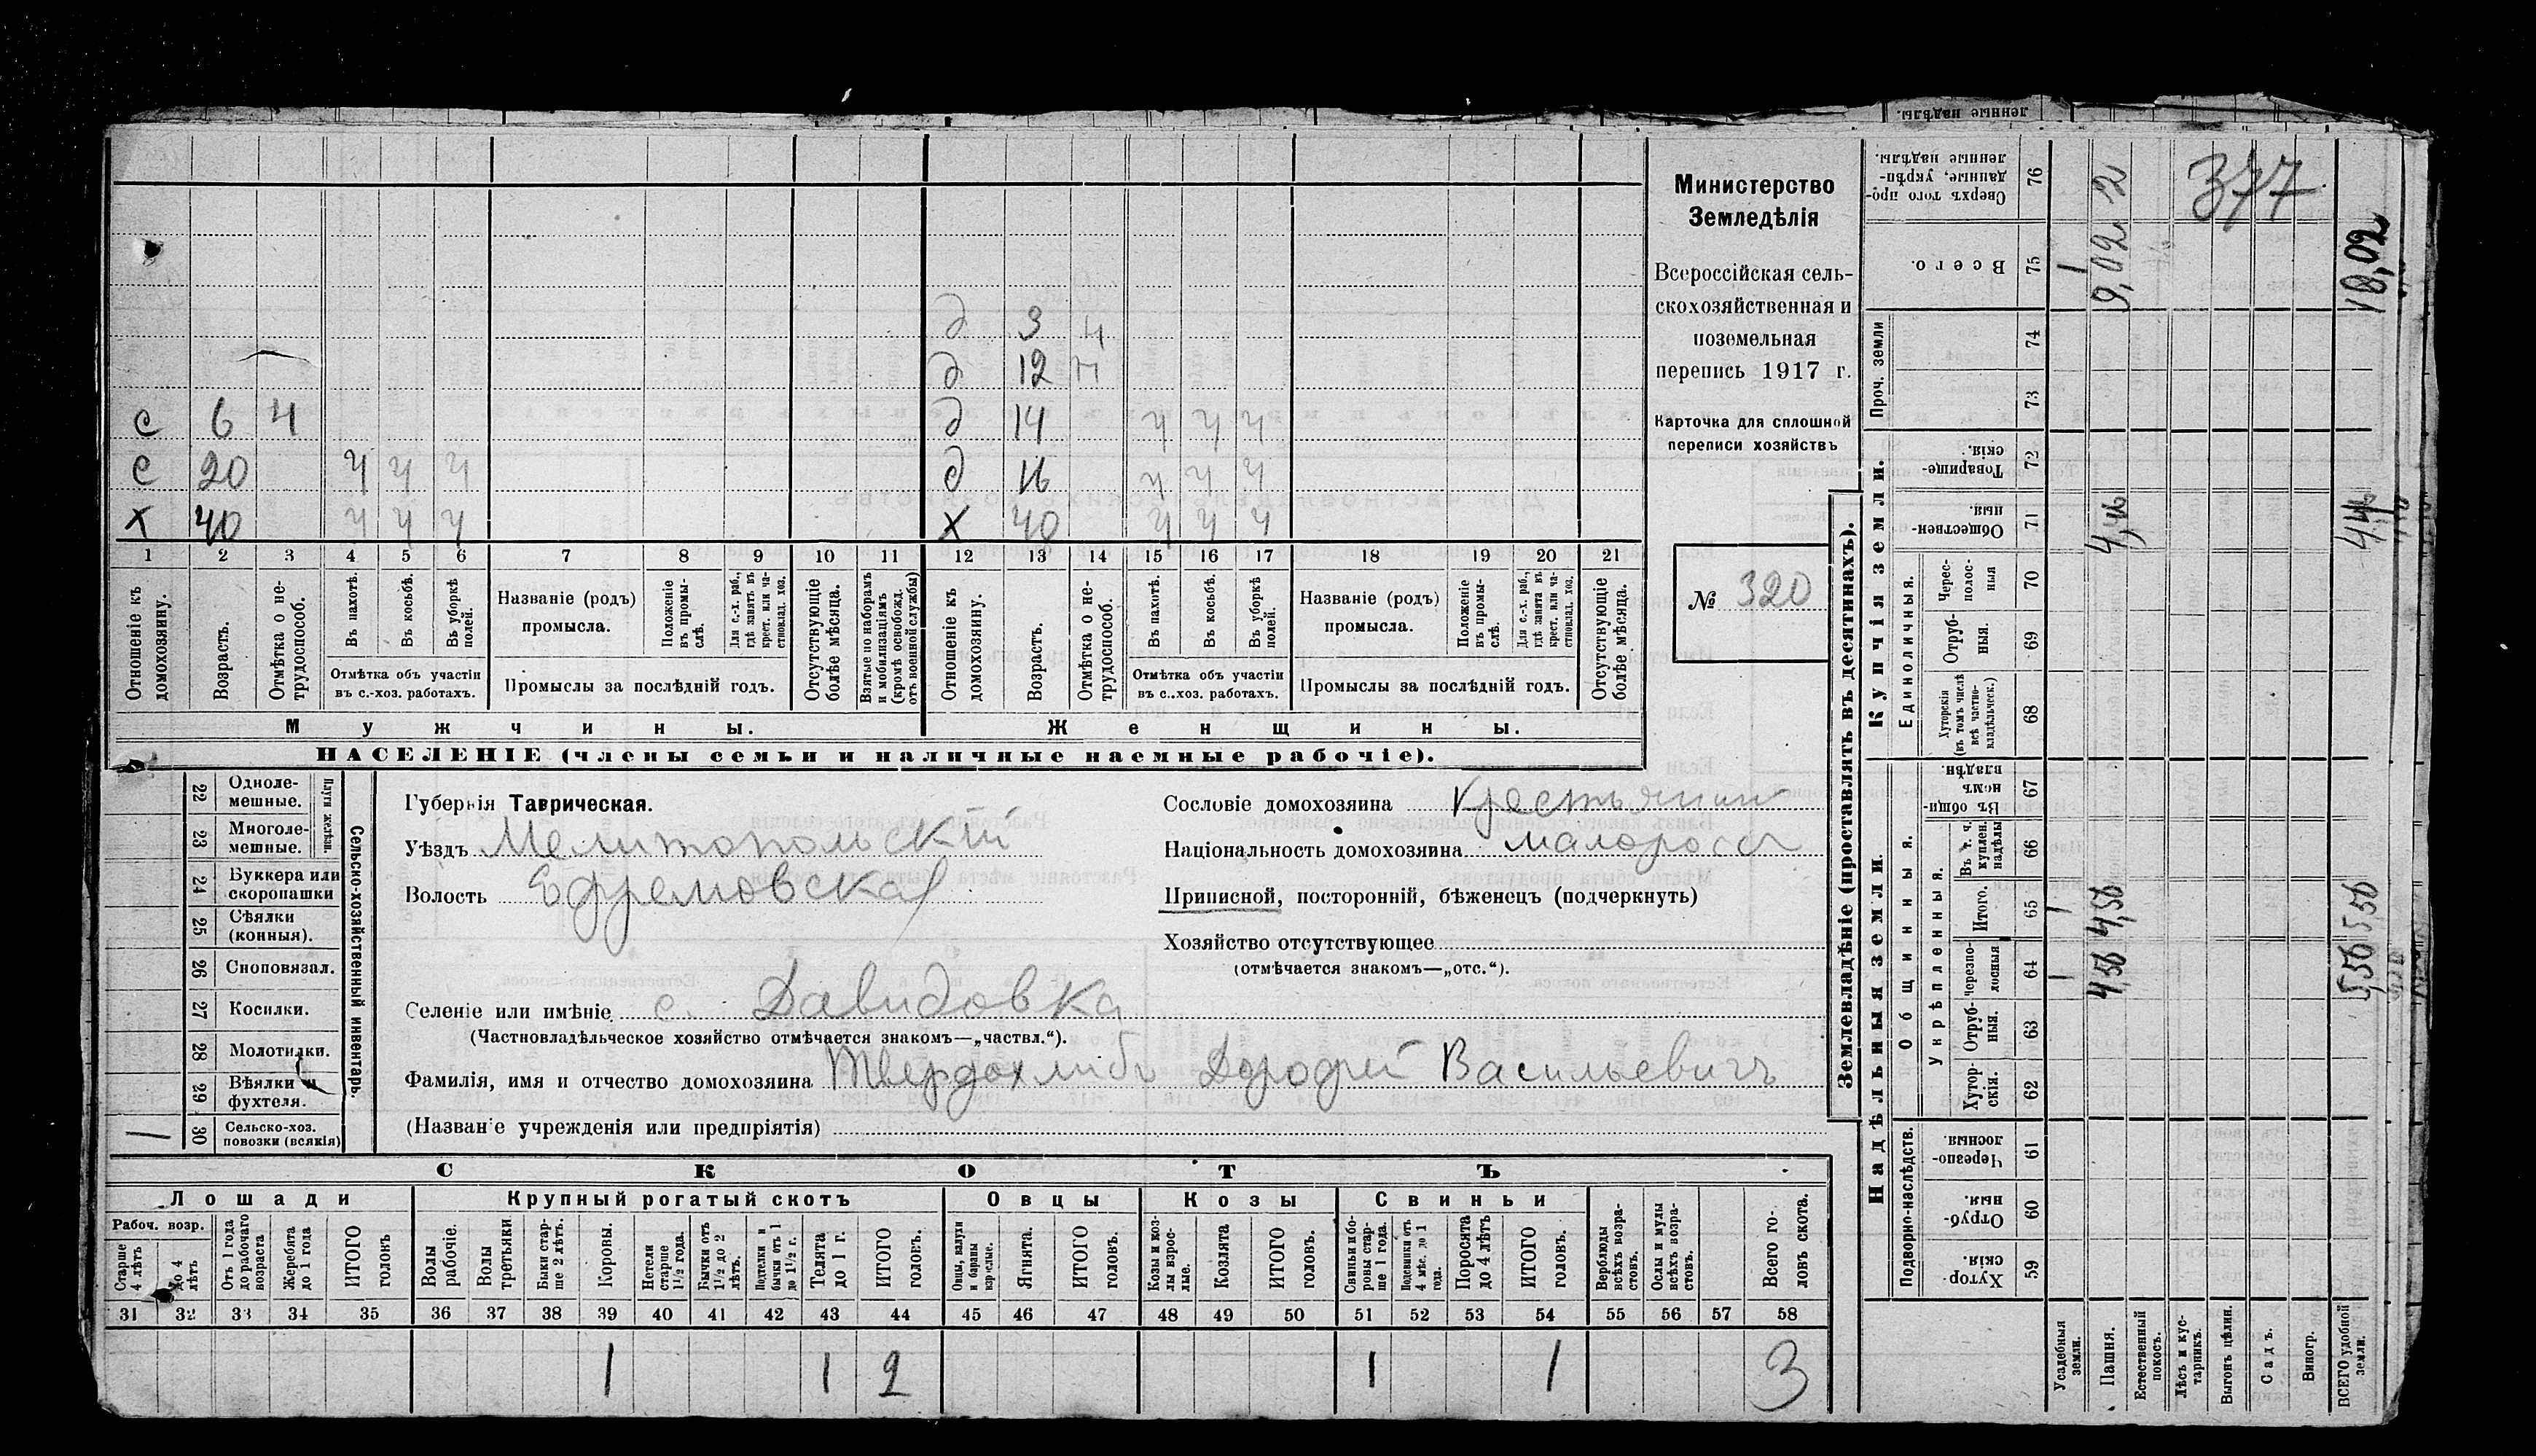 Министерство
Земледѣлія
Всероссійская сель-
скохозяйственная и
поземельная
перепись 1917 г.
Карточка для сплошной
переписи хозяйствъ
№ 320
377
д 3 н
д 12 н
с 6 ч д 14 ч ч ч
с 20 ч ч ч д 16 ч ч ч
х 40 ч ч ч х 40 ч ч ч
1 2 3 4 5 6 7 8 9 10 11 12 13 14 15 16 17 18 19 20 21
Отношеніе къ домохозяину.
Возрастъ.
Отмѣтка о не-трудоспособ.
Въ пахотѣ.
Въ косьбѣ.
Въ уборкѣ полей.
Отмѣтка объ участіи
въ с.-хоз. работахъ.
Названіе (родъ)
промысла.
Положеніе въ промы-слѣ.
Для с.-х. раб., гдѣ занятъ въ крест. или ча-стновлад. хоз.
Промыслы за послѣдній годъ.
Отсутствующіе болѣе мѣсяца.
Взятые по наборамъ и мобилизаціямъ (кромѣ освобожд. отъ военной службы)
Отношеніе къ домохозяину.
Возрастъ.
Отмѣтка о не-трудоспособ.
Въ пахотѣ.
Въ косьбѣ.
Въ уборкѣ полей.
Отмѣтка объ участіи
въ с.-хоз. работахъ.
Названіе (родъ)
промысла.
Положеніе въ промы-слѣ.
Для с.-х. раб., гдѣ занята въ крест. или ча-стновлад. хоз.
Промыслы за послѣдній годъ.
Отсутствующіе болѣе мѣсяца.
Мужчины. Женщины.
НАСЕЛЕНІЕ (члены семьи и наличные наемные рабочіе).
Сельско-хозяйственный инвентарь.
Плуги желѣзн.
22 Одноле-мешные.
23 Многоле-мешные.
24 Буккера или скоропашки
25 Сѣялки (конныя).
26 Сноповязал.
27 Косилки.
28 Молотилки.
29 Вѣялки и фухтеля.
30 Сельско-хоз. повозки (всякія)
Губернія Таврическая.
Уѣздъ Мелитопольскій
Волость Ефремовская
Селеніе или имѣніе с. Давидовка
(Частновладѣльческое хозяйство отмѣчается знакомъ—„частвл.“).
Фамилія, имя и отчество домохозяина Твердохлибъ Дорофей Васильевичъ
(Названіе учрежденія или предпріятія)
Сословіе домохозяина Крестьянинъ
Національность домохозяина малороссъ
Приписной, посторонній, бѣженецъ (подчеркнуть)
Хозяйство отсутствующее
(отмѣчается знакомъ—„отс.“).
СКОТЪ
Лошади Крупный рогатый скотъ Овцы Козы Свиньи
Рабоч. возр.
Старше 4 лѣтъ
до 4 лѣтъ
Отъ 1 года до рабочаго возраста
Жеребята до 1 года
ИТОГО головъ
Волы рабочіе.
Волы третьяки
Быки стар-ше 2 лѣтъ.
Коровы.
Нетели старше 1½ года.
Бычки отъ 1½ до 2 лѣтъ.
Подтелки и бычки отъ 1 до 1½ г.
Телята до 1 г.
ИТОГО головъ.
Овцы, валухи и бараны взрослые.
Ягнята.
ИТОГО головъ.
Козы и коз-лы взрос-лые.
Козлята
ИТОГО головъ.
Свиньи и бо-ровы стар-ше 1 года.
Подсвинки отъ 4 мѣс. до 1 года.
Поросята до 4 лѣтъ
ИТОГО головъ.
Верблюды всѣхъ возра-стовъ.
Ослы и мулы всѣхъ возра-стовъ.
Всего го-ловъ скота.
31 32 33 34 35 36 37 38 39 40 41 42 43 44 45 46 47 48 49 50 51 52 53 54 55 56 57 58
1 1 2 1 1 3
Землевладѣніе (проставлять въ десятинахъ).
Купчія земли.
Надѣльныя земли.
Сверхъ того про-данные, укрѣп-ленные надѣлы. 76 2
Всего. 75 1 9,02 10,02
Проч. земли 74 73
Товарище-скія. 72
Обществен-ныя. 71
Единоличныя.
Черес-полос-ныя 70
Отруб-ныя. 69
Хуторскія (въ томъ числѣ всѣ частно-владѣльческ.) 68
Общинныя.
Въ общи-номъ владѣн. 67
Укрѣпленныя.
Въ т. ч. куплен. надѣлы 66
Итого. 65 1 4,56 5,56
Черезпо-лосныя 64 1 4,56 5,56
Отруб-ныя. 63
Хутор-скія. 62
Подворно-наслѣдств.
Черезпо-лосныя. 61
Отруб-ныя. 60
Хутор-скія. 59
Усадебныя земли.
Пашня.
Естественный покосъ.
Лѣсъ и кус-тарникъ.
Выгонъ цѣлин.
Садъ.
Виногр.
ВСЕГО удобной земли.